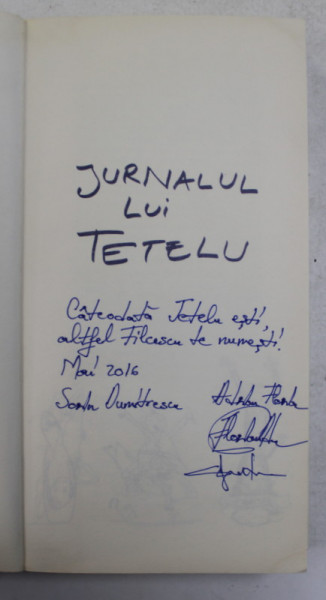 JURNALUL
LUI
TETELU
Câteodată Tetelu ești,
altfel Filcescu te numești!
Mai 2016
Dumitrescu